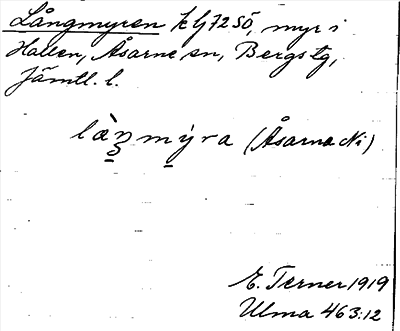 Långmyren k lj 7 2 SÖ, myr i
Hallen, Åsarne sn, Bergs tg,
Jämtl. l.
làn̡mýra (Åsarna Ni)
E. Terner 1919
Ulma 463:12